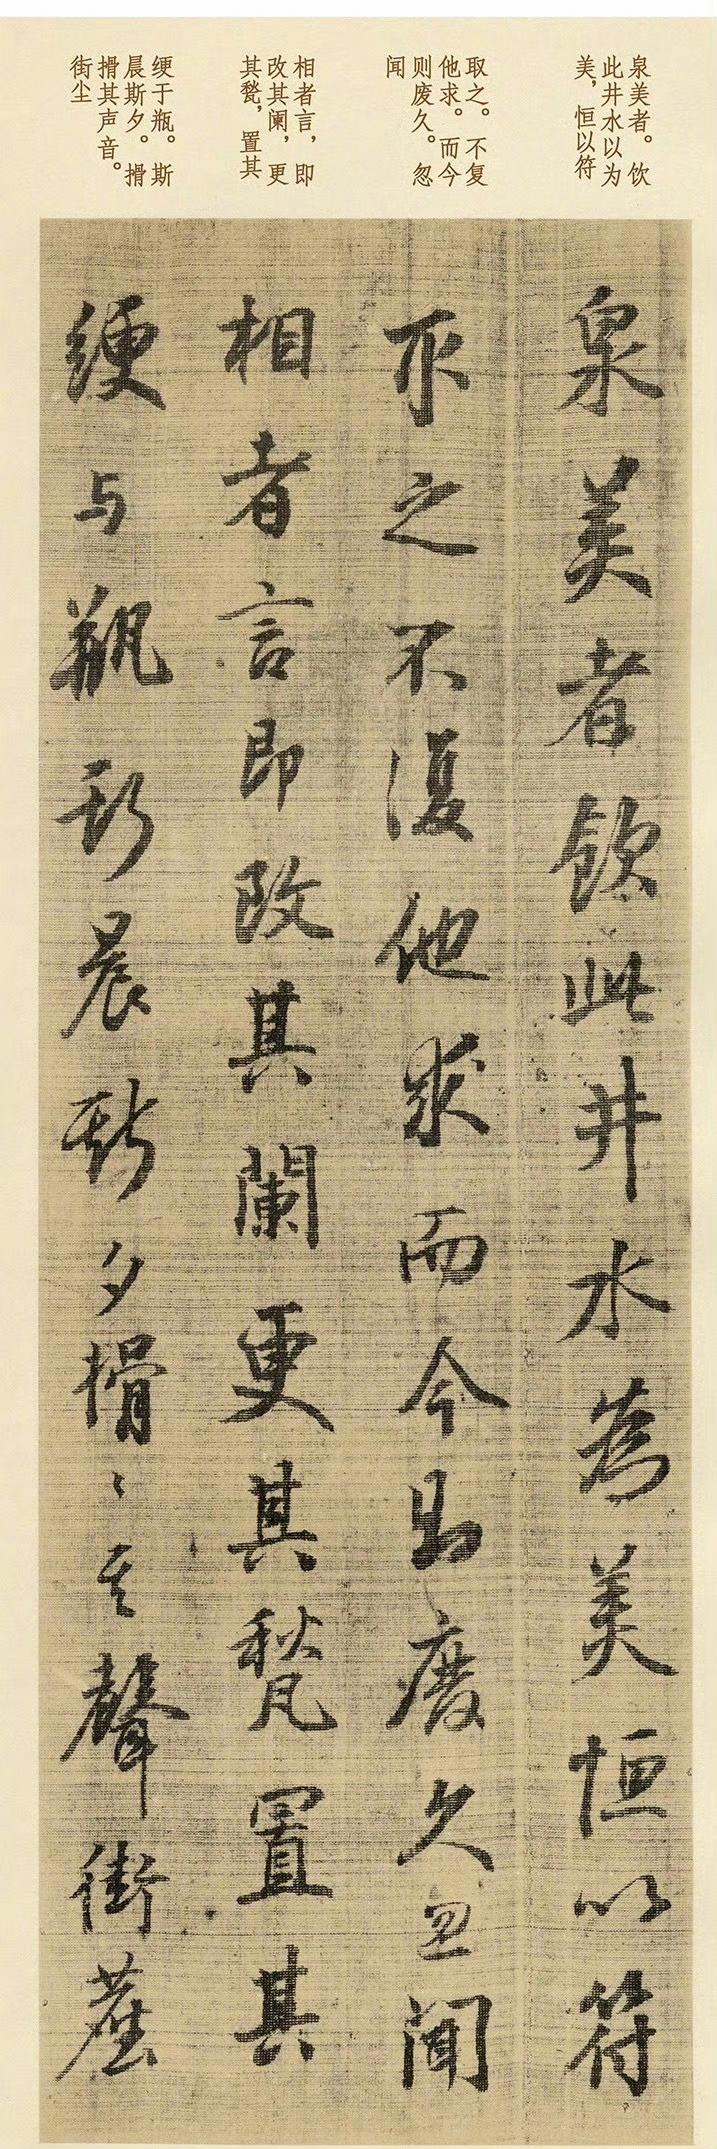 泉美者。饮
此井水以为
美，恒以符
取之。不复
他求。而今
则废久。忽
闻
相者言，即
改其阑，更
其甃，置其
绠于瓶。斯
晨斯夕。搰
搰其声音。
街尘
泉美者飲此井水為美恒以符
取之不復他求而今則廢久忽聞
相者言即改其闌更其甃置其
綆与瓶斯晨斯夕搰〻其聲街塵